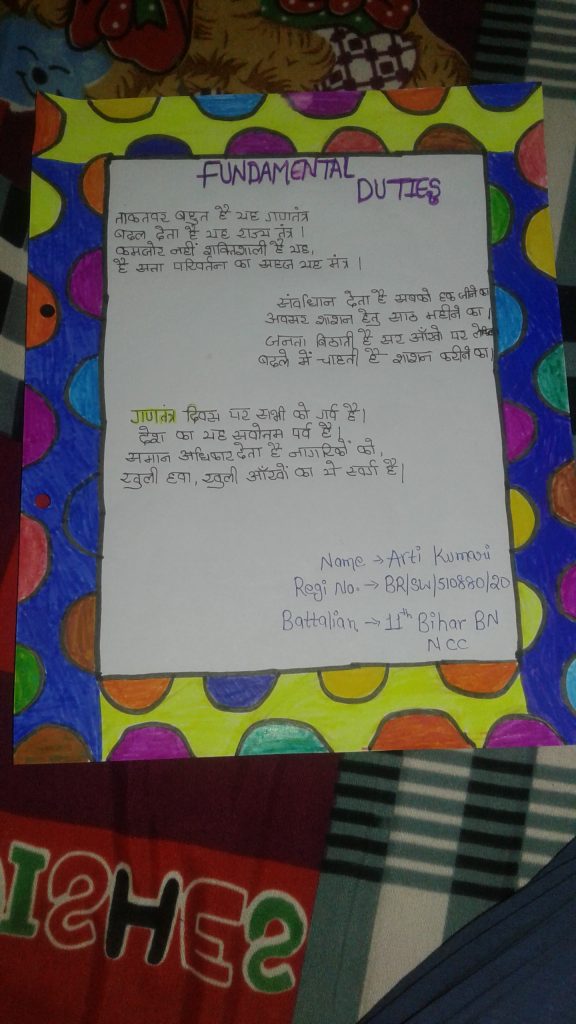 FUNDAMENTAL
DUTIES
ताकतवर बहुत है यह गणतंत्र
बदल देता है यह राज्य तंत्र ।
कमजोर नहीं शक्तिशाली है यह,
है सता परिवर्तन का सहज यह मंत्र ।
संवधिान देता है सबको हक जीने का
अवसर शाशन हेतु साठ महीने का ।
जनता बिठाती है सर आँखो पर लेकिन
बदले में चाहती है शाशन करीने का ।
गणतंत्र दिवस पर सभी को गर्व है ।
देश का यह सवोतम पर्व है ।
समान अधिकार देता है नागरिकों को,
खुली हवा, खुली आँखों का ये स्वर्ग है ।
Name → Arti Kumari
Regi No. → BR/SW/510880/20
Battalian → 11th Bihar BN
NCC
ISHES